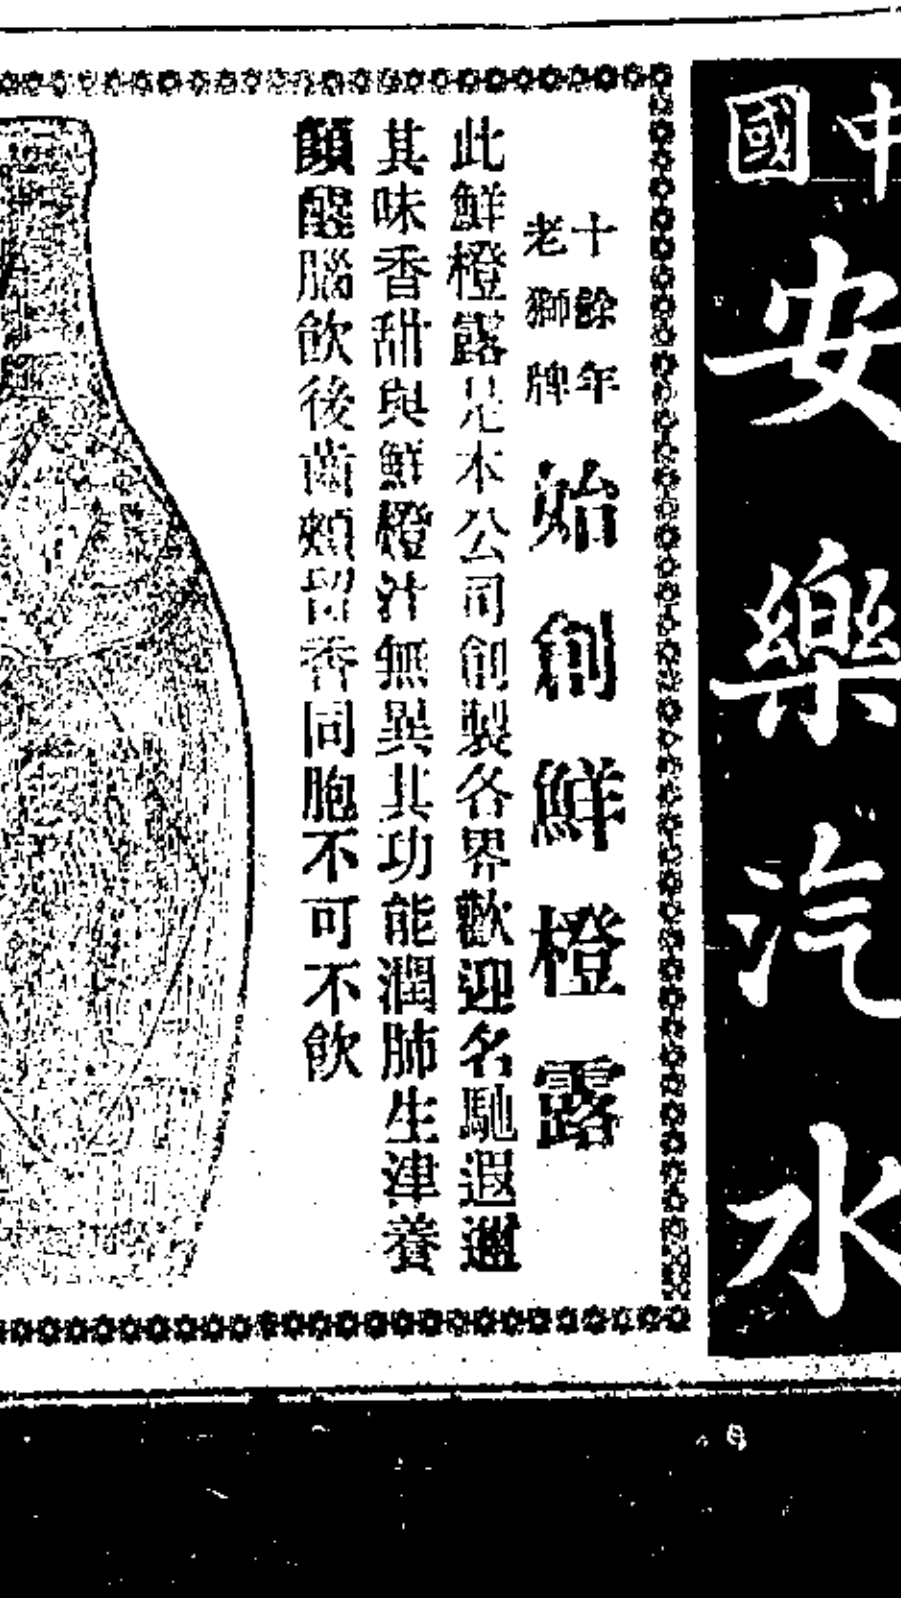 中國
安樂汽水
十餘年
老獅牌
始創鮮橙露
此鮮橙露是本公司創製各界歡迎名馳遐邇
其味香甜與鮮橙汁無異其功能潤肺生津養
顏醒腦飲後齒頰留香同胞不可不飲